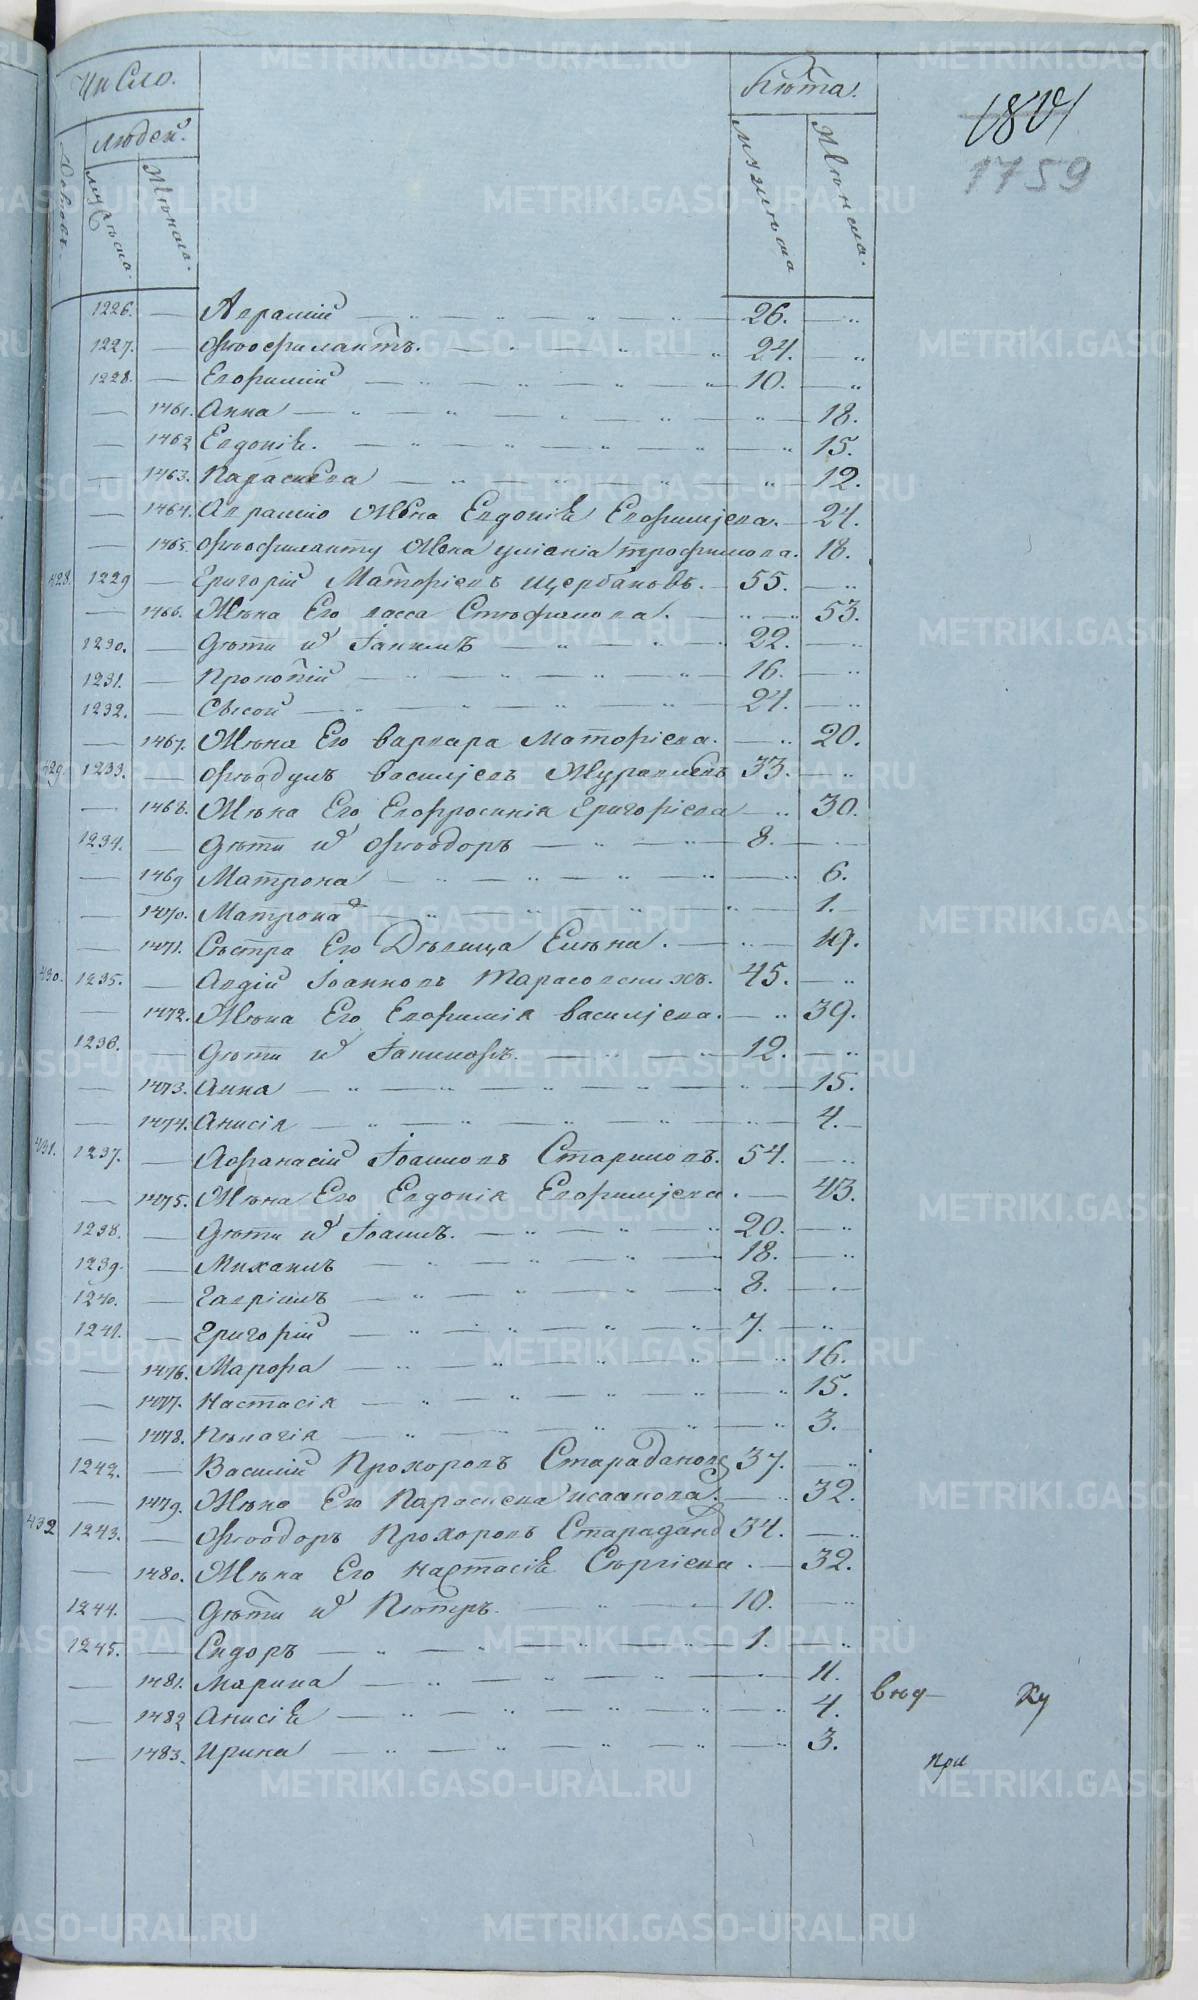 Число.
Лѣта.
1841
1759
людей.
Дворовъ.
мужеска.
Женска.
мужеска
Женска.
1226. — Авраамій — 26. —
1227. — Ѳеофилактъ. — 24. —
1228. — Евфимій — 10. —
— 1461. Анна — 18.
— 1462 Евдокія. — 15.
— 1463. Параскева — 12.
— 1464. Авраамію Жена Евдокія Евфимјева. — 24.
— 1465. Ѳеофилакту Жена Уліанія трофимова. 18.
428. 1229 — Григорій Матѳіевъ Щербаковъ. — 55. —
— 1466. Жена Его васса Стефанова. — 53.
1230. — Дѣти и҆хъ Іакимъ — 22. —
1231. — Прокопій — 16. —
1232. — Сысой — 24. —
— 1467. Жена Его варвара Матѳіева. — 20.
429. 1233. — Ѳеодулъ василјевъ Журавлевъ 33. —
— 1468. Жена Его Евфросинія Григоріева — 30.
1234. — Дѣти и҆хъ Ѳеодоръ — 8. —
— 1469 Матрона — 6.
— 1470. Матрона — 1. —
— 1471. Сестра Его Дѣвица Елена. — 19.
430. 1235. — Авдій Іоанновъ Тарасовскихъ. 45. —
— 1472. Жена Его Евфимія василјева. — 39.
1236. — Дѣти и҆хъ Іакиновъ. — 12. —
— 1473. Анна — 15.
— 1474. Анисія — 4. —
431. 1237. — Аѳанасій Іоанновъ Стариковъ. 54. —
— 1475. Жена Его Евдокія Евфимјева. — 43.
1238. — Дѣти и҆хъ Іоаннъ. — 20. —
1239. — Михаилъ — 18. —
1240. — Гавріилъ — 8. —
1241. — Григорій — 7. —
— 1476. Марѳа — 16.
— 1477. Настасія — 15.
— 1478. Пелагія — 3.
1242. — Василій Прохоровъ Старадановъ 37. —
— 1479. Жена Его Параскева исаакова. — 32.
432 1243. — Ѳеодоръ Прохоровъ Старадановъ 34. —
— 1480. Жена Его настасія Сергіева. — 32.
1244. — Дѣти и҆хъ Петръ. — 10. —
1245. — Сидоръ — 1. —
— 1481. Марина — 11.
— 1482 Анисія — 4.
— 1483. Ирина — 3.
вед— Ку
при
METRIKI.GASO-URAL.RU